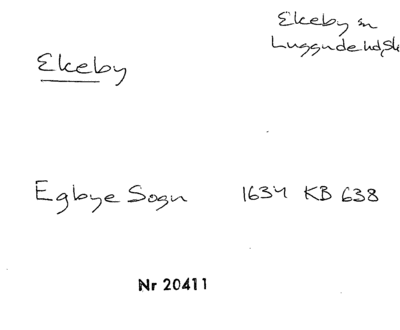 Ekeby sn
Luggude hd, Sk
Ekeby
Egbye Sogn 1634 KB 638
Nr 20411